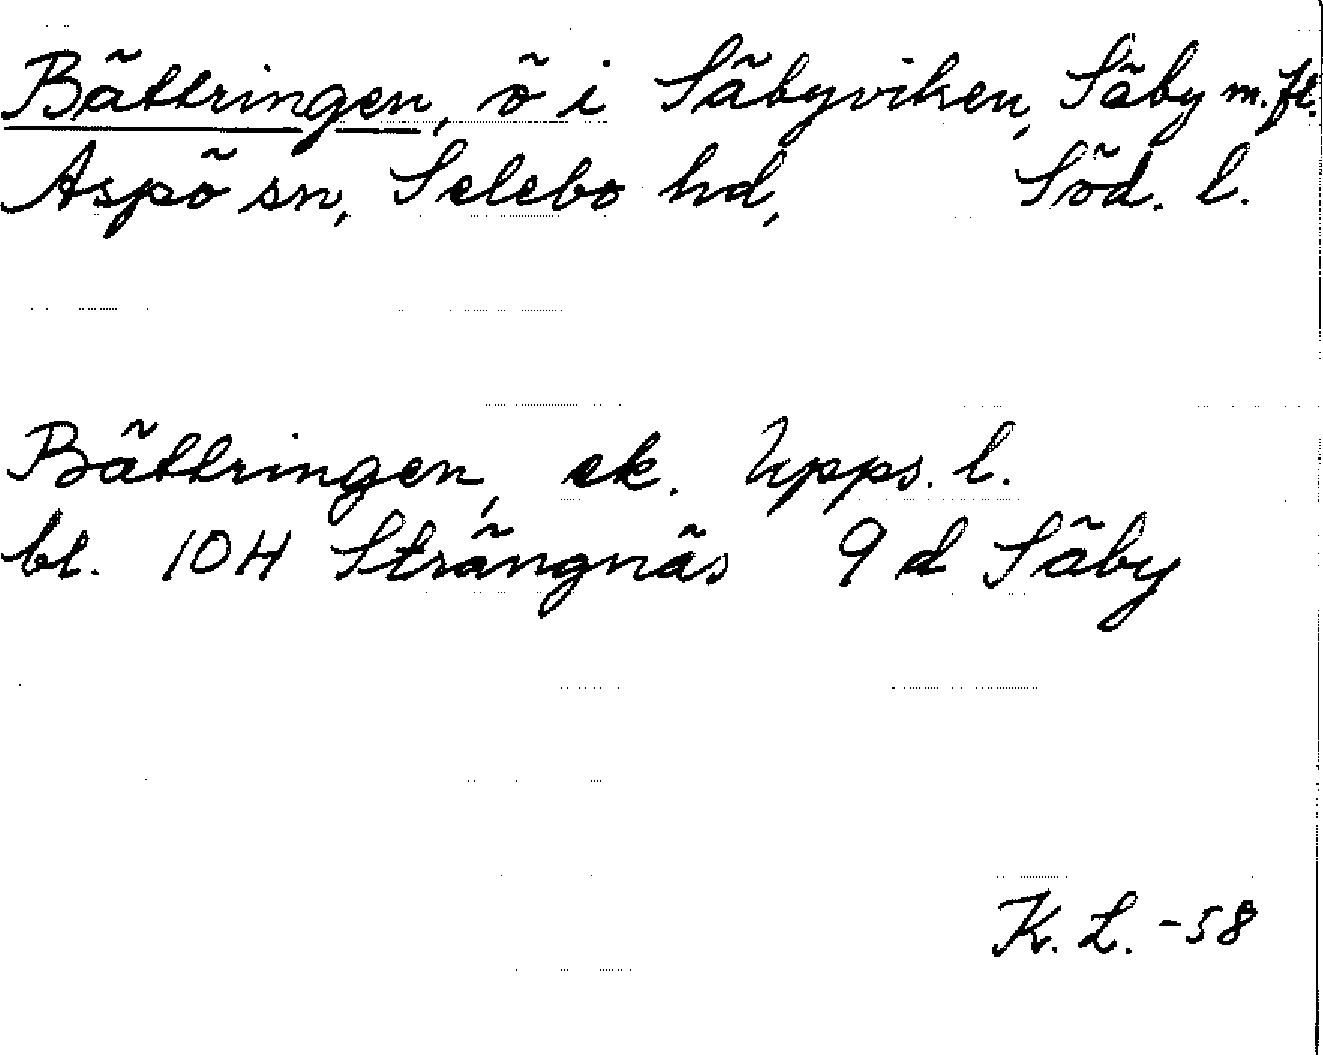 Bättringen, ö i Säbyviken, Säby m.fl.
Aspö sn, Selebo hd, Söd. l.
Bättringen, ek. Upps. l.
bl. 10H Strängnäs 9 d Säby
K. L. -58